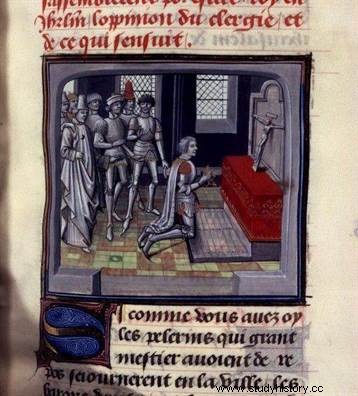 roy en
Jhrlm lopinion du clergie et
de ce qui sensuit.
Si comme vous auez oy
les pelerins qui grant
mestier auoient de re
pos seiournerent en la ville, les
www.studyhistory.cc